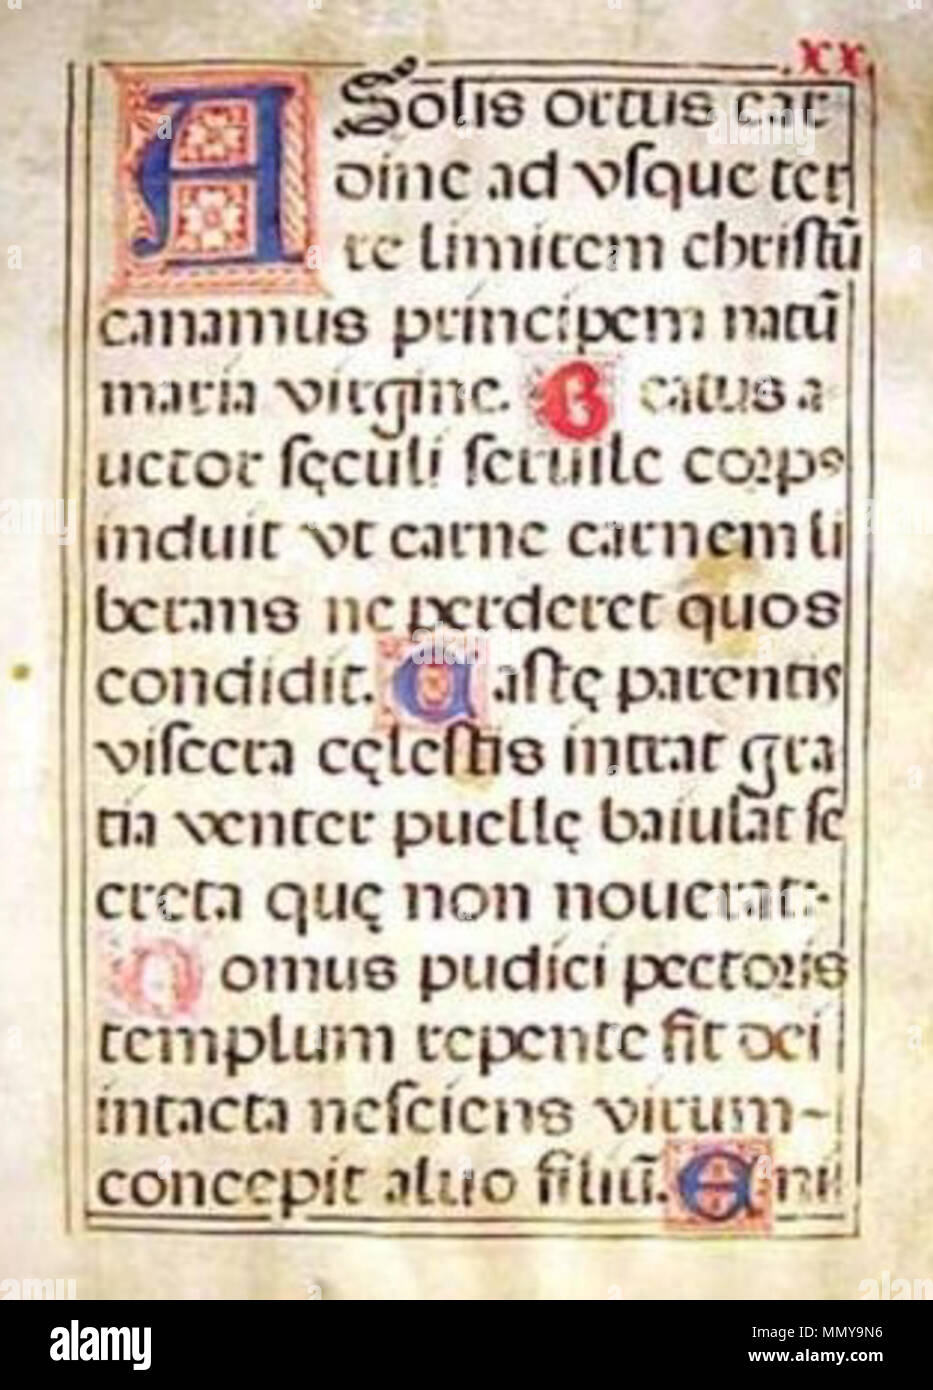 .XX.
A Solis ortus car
dine ad vſque ter
re limitem chriſtū
canamus principem natū
maria virgine. Beatus a
uctor ſęculi ſeruile corpꝰ
induit vt carne carnem li
berans ne perderet quos
condidit. Caſtę parentis
viſcera cęleſtis intrat gra
tia venter puellę baiulat ſe
creta quę non nouerat.
Domus pudici pectoris
templum repente fit dei
intacta neſciens virum
concepit aluo filiū. Eni
alamy
Image ID: MMY9N6
www.alamy.com